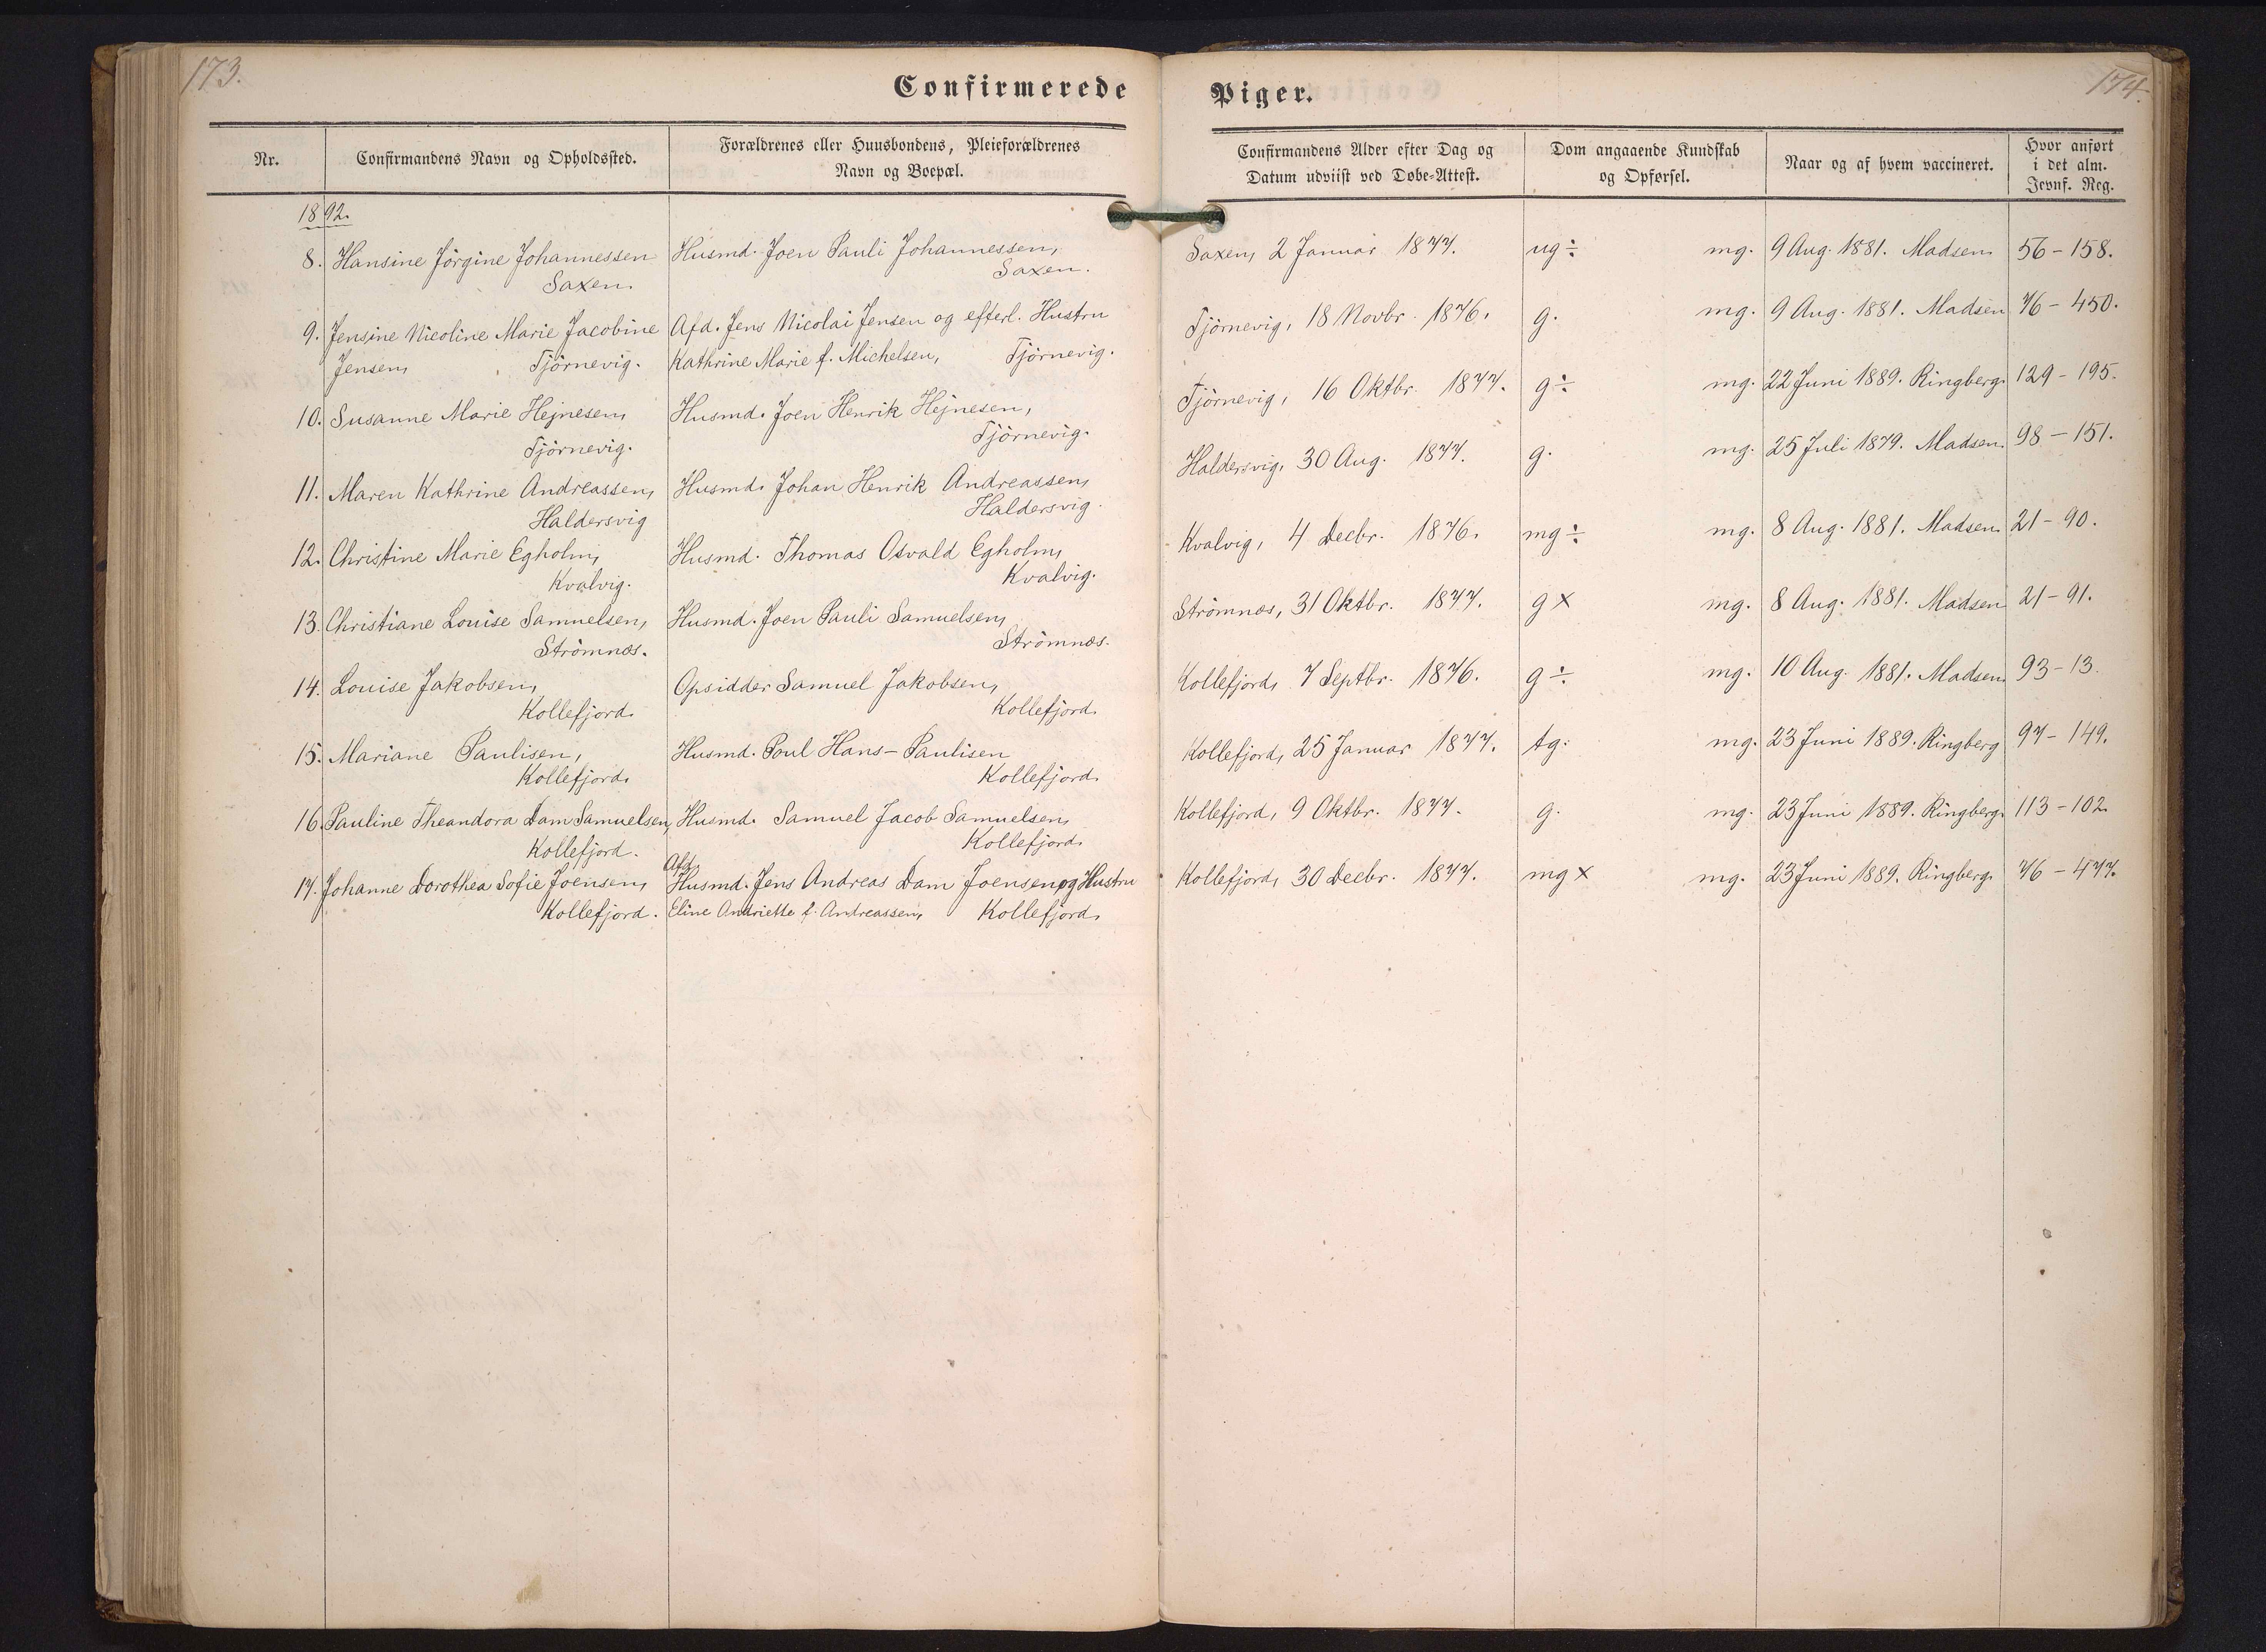 173.
Confirmerede
Nr.
Confirmandens Navn og Opholdssted.
Forældrenes eller Huusbondens, Pleieforældrenes
Navn og Boepæl.
1892.
8. Hansine Jörgine Johannessen Husmd. Joen Pauli Johannessen,
Saxen. Saxen.
9. Jensine Nicoline Marie Jacobine Afd. Jens Nicolai Jensen og efterl. Hustru
Jensen, Tjörnevig. Kathrine Marie f. Michelsen, Tjörnevig.
10. Susanne Marie Hejnesen, Husmd. Joen Henrik Hejnesen,
Tjörnevig. Tjörnevig.
11. Maren Kathrine Andreassen, Husmd. Johan Henrik Andreassen,
Haldersvig Haldersvig.
12. Christine Marie Egholm, Husmd. Thomas Osvald Egholm,
Kvalvig. Kvalvig.
13. Christiane Louise Samuelsen, Husmd. Joen Pauli Samuelsen,
Strömnæs. Strömnæs.
14. Louise Jakobsen, Opsidder Samuel Jakobsen,
Kollefjord. Kollefjord.
15. Mariane Paulisen, Husmd. Poul Hans-Paulisen
Kollefjord. Kollefjord.
16. Pauline Theandora Dam Samuelsen, Husmd. Samuel Jacob Samuelsen,
Kollefjord. Kollefjord.
Afd.
17. Johanne Dorothea Sofie Joensen, Husmd. Jens Andreas Dam Joensen og Hustru
Kollefjord. Eline Andriette f. Andreassen, Kollefjord.
174.
Piger.
Confirmandens Alder efter Dag og
Datum udviist ved Døbe-Attest.
Dom angaaende Kundskab
og Opførsel.
Naar og af hvem vaccineret.
Hvor anført
i det alm.
Jevnf. Reg.
Saxen, 2 Januar 1877. ug÷ mg. 9 Aug. 1881. Madsen 56-158.
Tjörnevig, 18 Novbr. 1876. g. mg. 9 Aug. 1881. Madsen 76-450.
Tjörnevig, 16 Oktbr. 1877. g÷ mg. 22 Juni 1889. Ringberg. 129-195.
Haldersvig, 30 Aug. 1877. g. mg. 25 Juli 1879. Madsen. 98-151.
Kvalvig, 4 Decbr. 1876. mg÷ mg. 8 Aug. 1881. Madsen. 21-90.
Strömnæs, 31 Oktbr. 1877. g× mg. 8 Aug. 1881. Madsen 21-91.
Kollefjord, 7 Septbr. 1876. g÷ mg. 10 Aug. 1881. Madsen. 93-13.
Kollefjord, 25 Januar 1877. tg: mg. 23 Juni 1889. Ringberg 97-149.
Kollefjord, 9 Oktbr. 1877. g. mg. 23 Juni 1889. Ringberg. 113-102.
Kollefjord, 30 Decbr. 1877. mg× mg. 23 Juni 1889. Ringberg. 76-477.